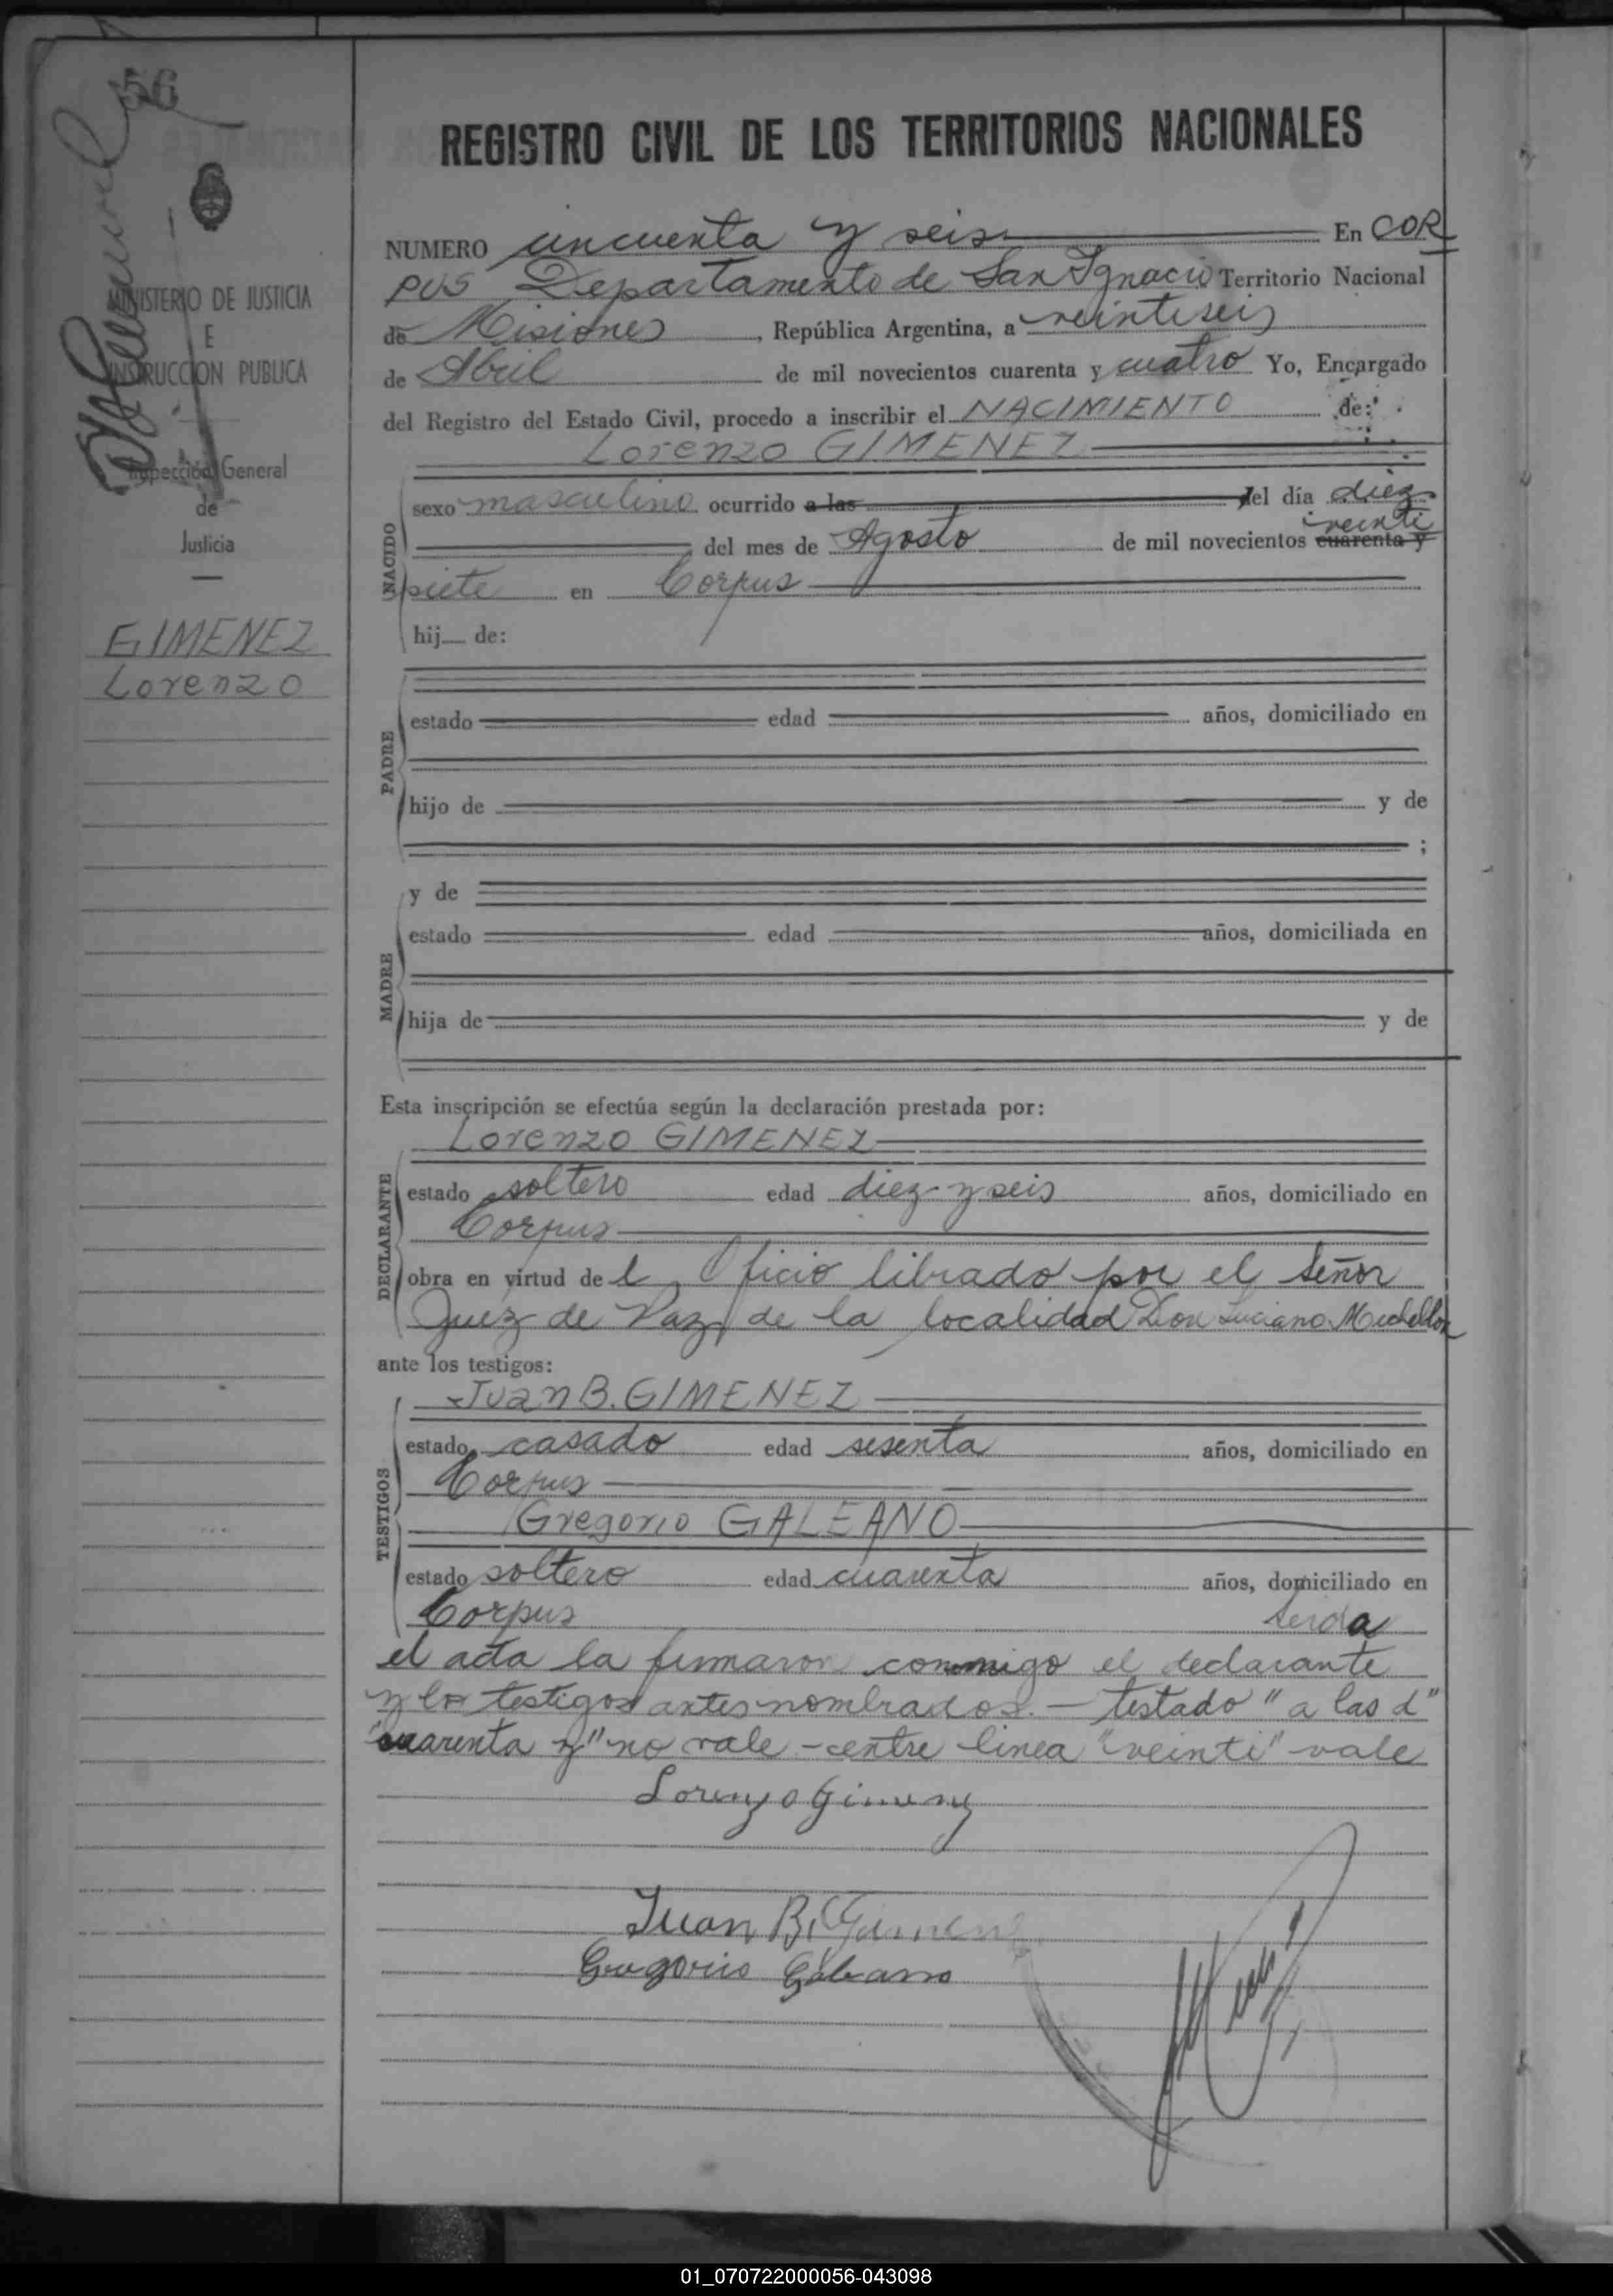 56
MINISTERIO DE JUSTICIA
E
INSTRUCCION PUBLICA
Inspección General
de
Justicia
GIMENEZ
Lorenzo
REGISTRO CIVIL DE LOS TERRITORIOS NACIONALES
NUMERO cincuenta y seis En COR
PUS Departamento de San Ignacio Territorio Nacional
de Misiones, República Argentina, a veintiseis
de Abril de mil novecientos cuarenta y cuatro Yo, Encargado
del Registro del Estado Civil, procedo a inscribir el NACIMIENTO de:
Lorenzo GIMENEZ
NACIDO
sexo masculino ocurrido a las del día diez
veinti
del mes de Agosto de mil novecientos cuarenta y
siete en Corpus
hij de:
PADRE
estado edad años, domiciliado en
hijo de y de
;
MADRE
y de
estado edad años, domiciliada en
hija de y de
Esta inscripción se efectúa según la declaración prestada por:
DECLARANTE
Lorenzo GIMENEZ
estado soltero edad diez y seis años, domiciliado en
Corpus
obra en virtud de l Oficio librado por el Señor
Juez de Paz de la localidad Don Luciano
ante los testigos:
TESTIGOS
Juan B. GIMENEZ
estado casado edad sesenta años, domiciliado en
Corpus
Gregorio GALEANO
estado soltero edad cuarenta años, domiciliado en
Corpus Leida
el acta la firmaron conmigo el declarante
y los testigos antes nombrados. - testado "a las d"
"cuarenta y" no vale - entre linea "veinti" vale
Lorenzo Gimenez
Juan B. Gimenez
Gregorio Galeano
01_070722000056-043098